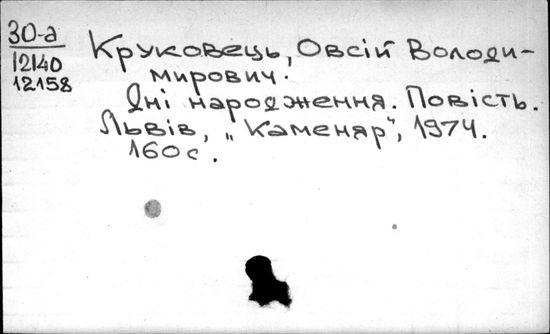 30-а
12140
12158
Круковець, Овсій Володи-
мирович.
Дні народження. Повість.
Львів, „Каменяр", 1974.
160с.